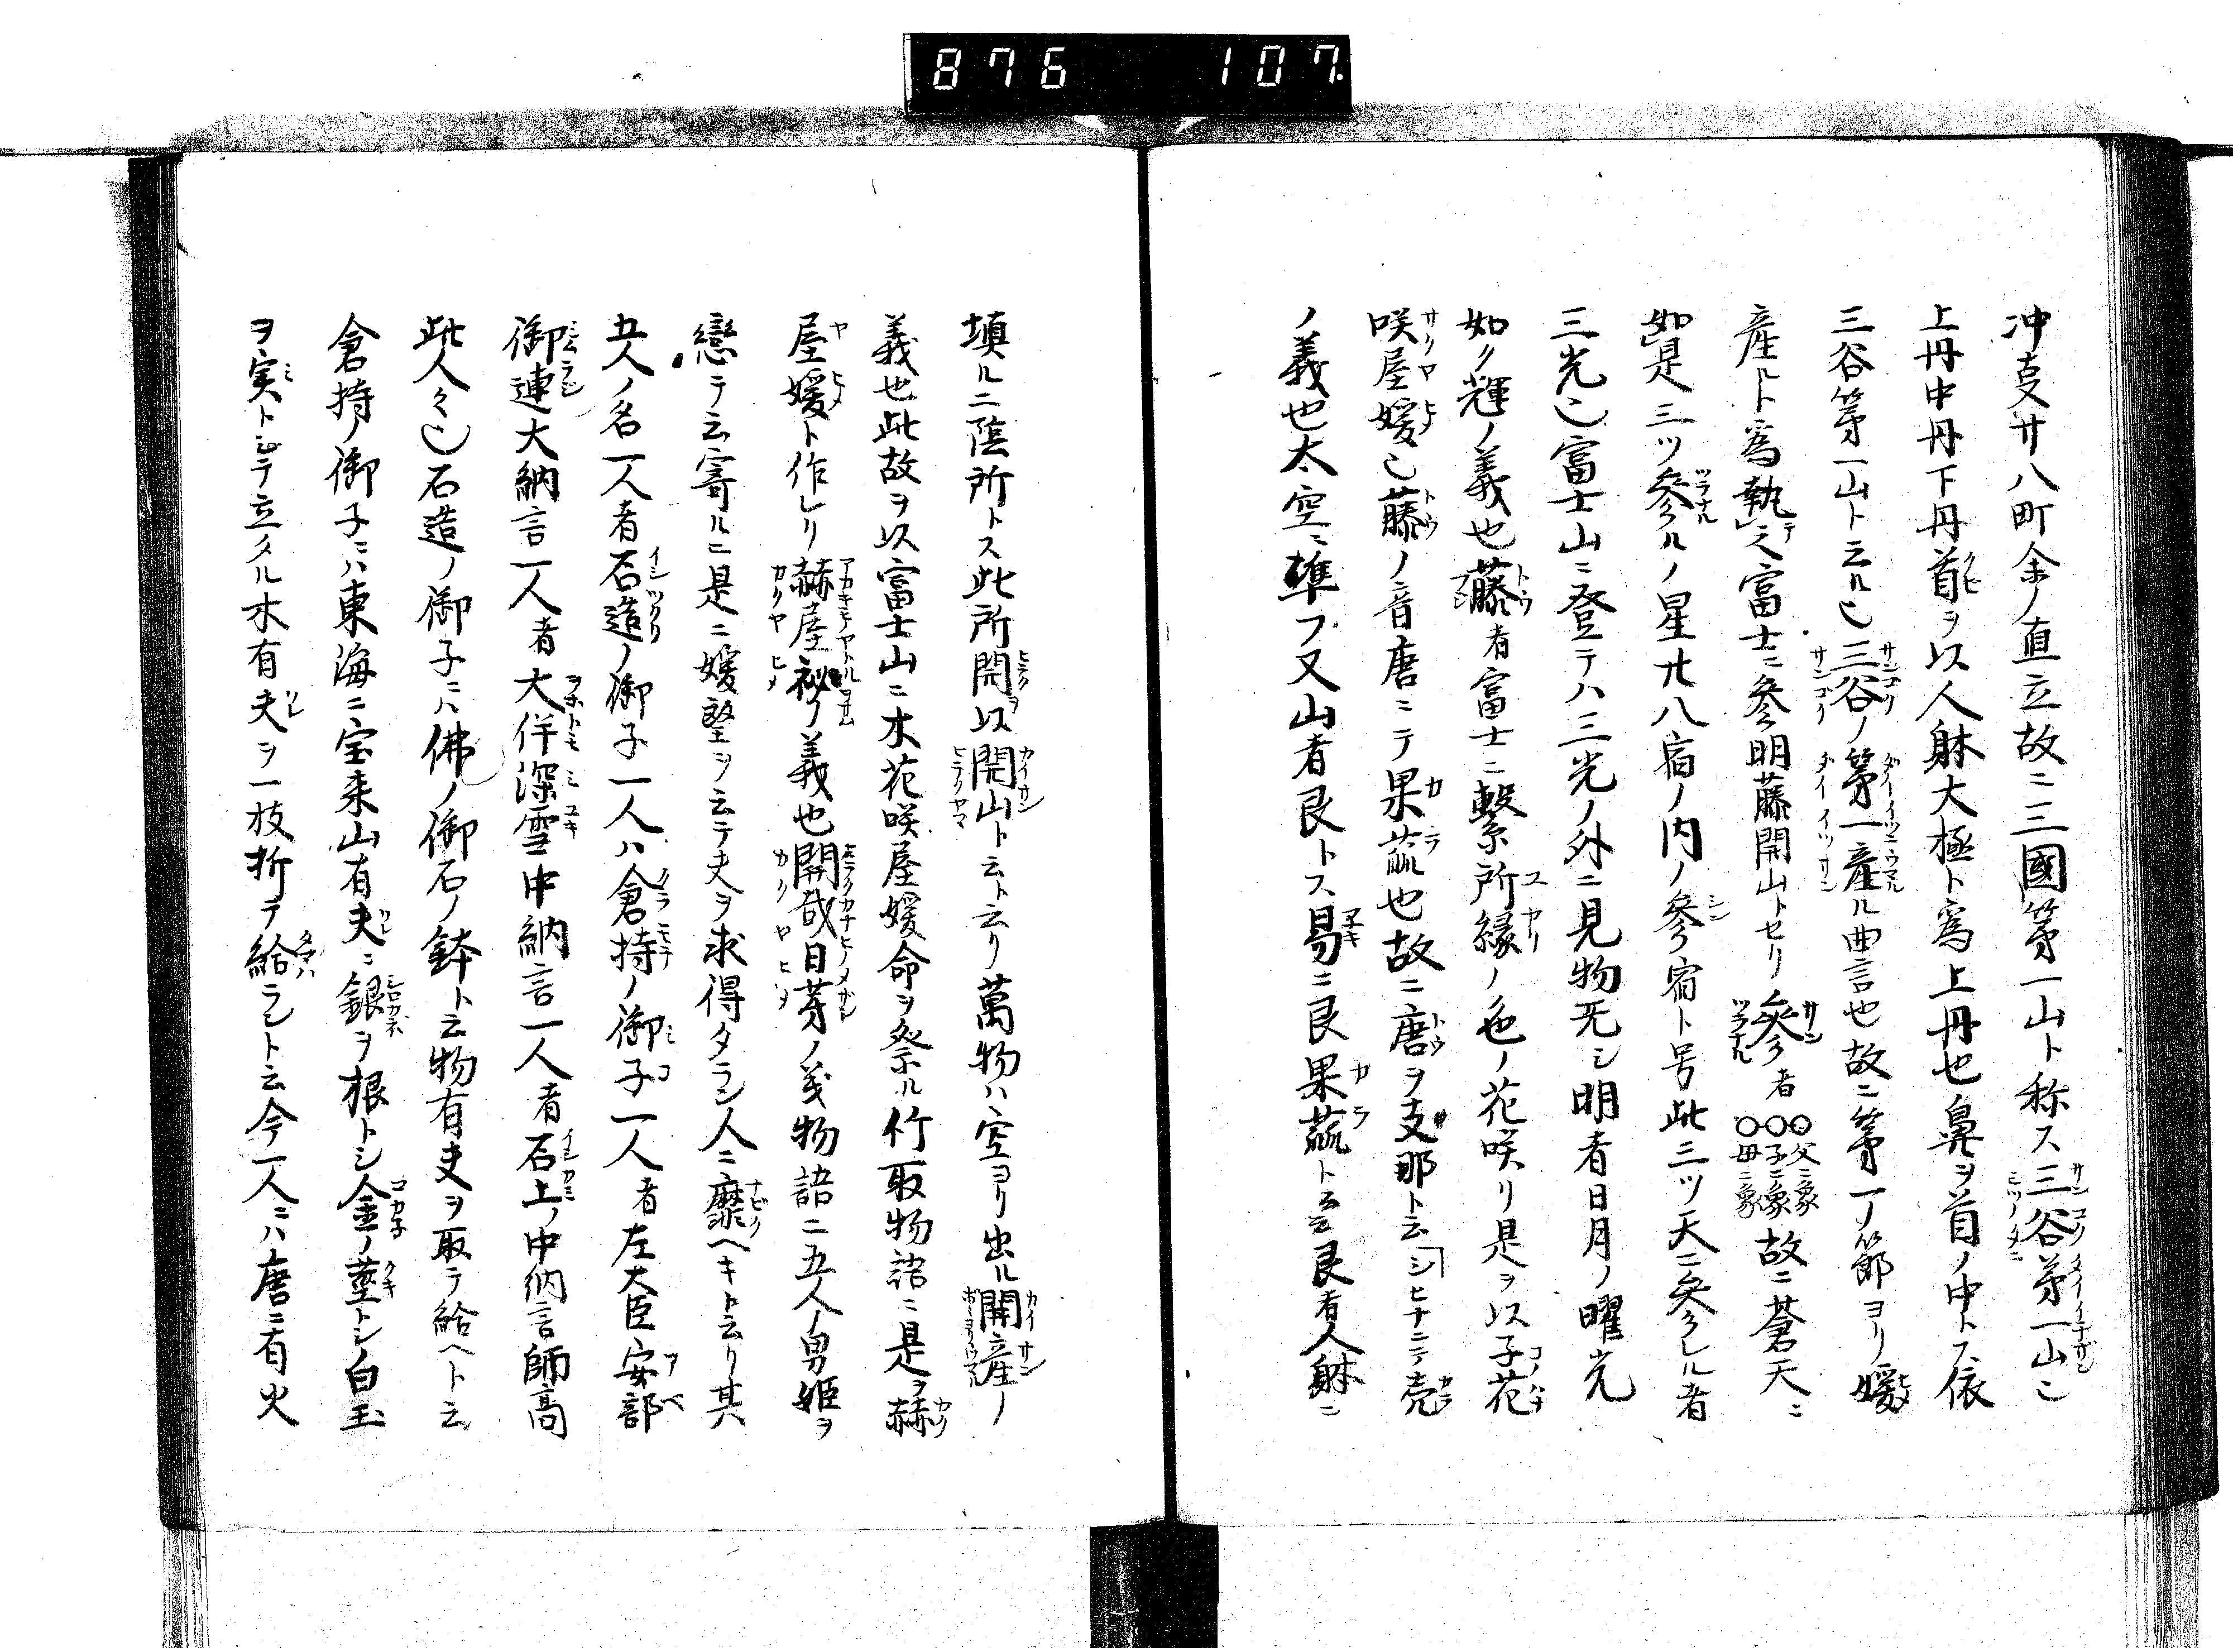 876 107
冲㕝廿八町余ノ直立故ニ三國第一山ト称ス三谷第一山也
上丹中丹下丹首ヲ以人躰大極ト為上丹也鼻ヲ首ノ中トス依
三谷第一山ト云ルヒ三谷ノ第一産ル曲言也故ニ第一ノ節ヨリ媛
産ルト為執之富士ニ参明藤開山トセリ参者○○○父ニ象子ニ象母ニ象故ニ蒼天ニ
如是三ツ参ルノ星廿八宿ノ内ノ参宿ト号此三ツ天ニ参レル者
三光也富士山ニ登テハ三光ノ外ニ見物旡シ明者日月ノ曜光
如ク輝ノ義也藤者富士ニ繋所縁ノ色ノ花咲リ是ヲ以子花
咲屋媛也藤ノ音唐ニテ果蓏也故ニ唐ヲ支那ト云シヒナニテ売
ノ義也太空ニ準フ又山者艮トス易ニ艮果蓏ト云艮者人躰ニ
塡ル二陰所トス此所開以開山ト云ト云リ萬物ハ空ヨリ出ル開産ノ
義也此故ヲ以富士山ニ木花咲屋媛命ヲ祭ル竹取物語ニ是ヲ赫
屋媛ト作レリ赫屋祕ノ義也開哉日芽ノ義物語ニ五人ノ男姫ヲ
戀テ云寄ルニ是ニ媛堅ヲ云テ夫ヲ求得タラン人ニ靡ヘキト云リ其
五人ノ名一人者石造ノ御子一人ハ倉持ノ御子一人者左大臣安部
御連大納言一人者大伴深雪中納言一人者石上ノ中納言師高
此人々也石造ノ御子ニハ佛ノ御石ノ鉢ト云物有夫ヲ取テ給ヘト云
倉持ノ御子ニハ東海ニ宝来山有夫ニ銀ヲ根トシ金ノ莖トシ白玉
ヲ実トシテ立タル木有夫ヲ一枝折テ給ラント云今一人ニハ唐ニ有火